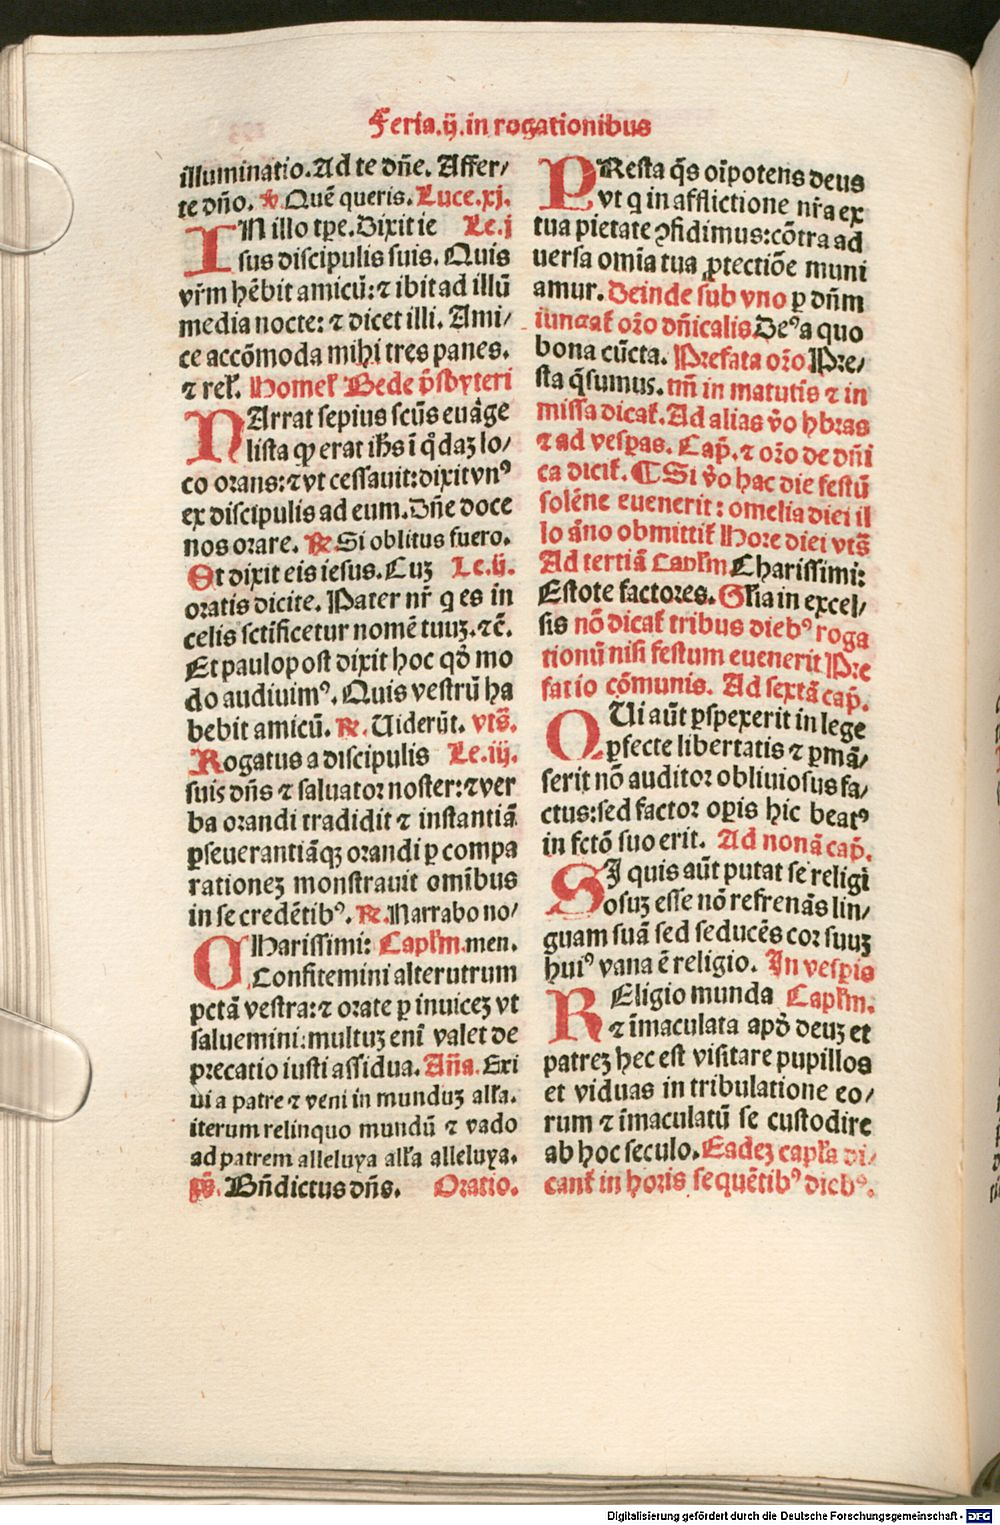 Feria.ij.in rogationibus
illuminatio. Ad te dn̄e. Affer/
te dn̄o. ℣ Quē queris. Luce.xj.
IN illo tp̄e. Dixit ie Le.j
sus discipulis suis. Quis
vr̄m hēbit amicū: ⁊ ibit ad illū
media nocte: ⁊ dicet illi. Ami/
ce accōmoda mihi tres panes.
⁊ rel̄. Homel̄ Bede p̄sbyteri
NArrat sepius scūs euāge
lista ꝙ erat ih̄s ī q̄daꝫ lo/
co orans: ⁊ vt cessauit: dixit vnꝰ
ex discipulis ad eum. Dn̄e doce
nos orare. ℟. Si oblitus fuero.
Et dixit eis iesus. Cuꝫ Le.ij.
oratis dicite. Pater nr̄ q es in
celis sctificetur nomē tuuꝫ. ⁊c̄.
Et paulopost dixit hoc qd̄ mo
do audiuimꝰ. Quis vestrū ha
bebit amicū. ℟. Uiderūt. vts̄.
Rogatus a discipulis Le.iij.
suis dn̄s ⁊ saluator noster: ⁊ ver
ba orandi tradidit ⁊ instantiā
ꝑseuerantiāqꝫ orandi ꝑ compa
rationeꝫ monstrauit omībus
in se credētibꝰ. ℟. Narrabo no/
CHarissimi: Capl̄m. men.
Confitemini alterutrum
pctā vestra: ⁊ orate ꝑ inuiceꝫ vt
saluemini: multuꝫ enī valet de
precatio iusti assidua. Añа. Exi
ui a patre ⁊ veni in munduꝫ all̄a.
iterum relinquo mundū ⁊ vado
ad patrem alleluya all̄a alleluya.
℣. Bn̄dictus dn̄s. Oratio.
PResta q̄s oīpotens deus
vt q in afflictione nr̄a ex
tua pietate ꝯfidimus: cōtra ad
uersa omīa tua ꝓtectiōe muni
amur. Deinde sub vno ꝑ dn̄m
iungat̄ or̄o dn̄icalis Deꝰ a quo
bona cūcta. Prefata or̄o. Pre/
sta q̄sumus. tm̄ in matutīs ⁊ in
missa dicat̄. Ad alias v̄o hōras
⁊ ad vesꝑas. Cap̄. ⁊ or̄o de dn̄i
ca dicit̄. ¶ Si v̄o hac die festū
solēne euenerit: omelia diei il
lo āno obmittit̄ Hore diei vts̄
Ad tertiā Capl̄m Charissimi:
Estote factores. Gl̄ia in excel/
sis nō dicat̄ tribus diebꝰ roga
tionū nisi festum euenerit Pre
fatio cōmunis. Ad sextā cap̄.
QUi aūt ꝑspexerit in lege
ꝑfecte libertatis ⁊ ꝑmā/
serit nō auditor obliuiosus fa/
ctus: sed factor oꝑis hic beatꝰ
in fctō suo erit. Ad nonā cap̄.
SI quis aūt putat se religi
osuꝫ esse nō refrenās lin/
guam suā sed seducēs cor suuꝫ
huiꝰ vana ē religio. In vesꝑis
REligio munda Capl̄m.
⁊ īmaculata apd̄ deuꝫ et
patreꝫ hec est visitare pupillos
et viduas in tribulatione eo/
rum ⁊ īmaculatū se custodire
ab hoc seculo. Eadeꝫ capl̄a di/
cant̄ in horis sequētibꝰ diebꝰ.
Digitalisierung gefördert durch die Deutsche Forschungsgemeinschaft - DFG